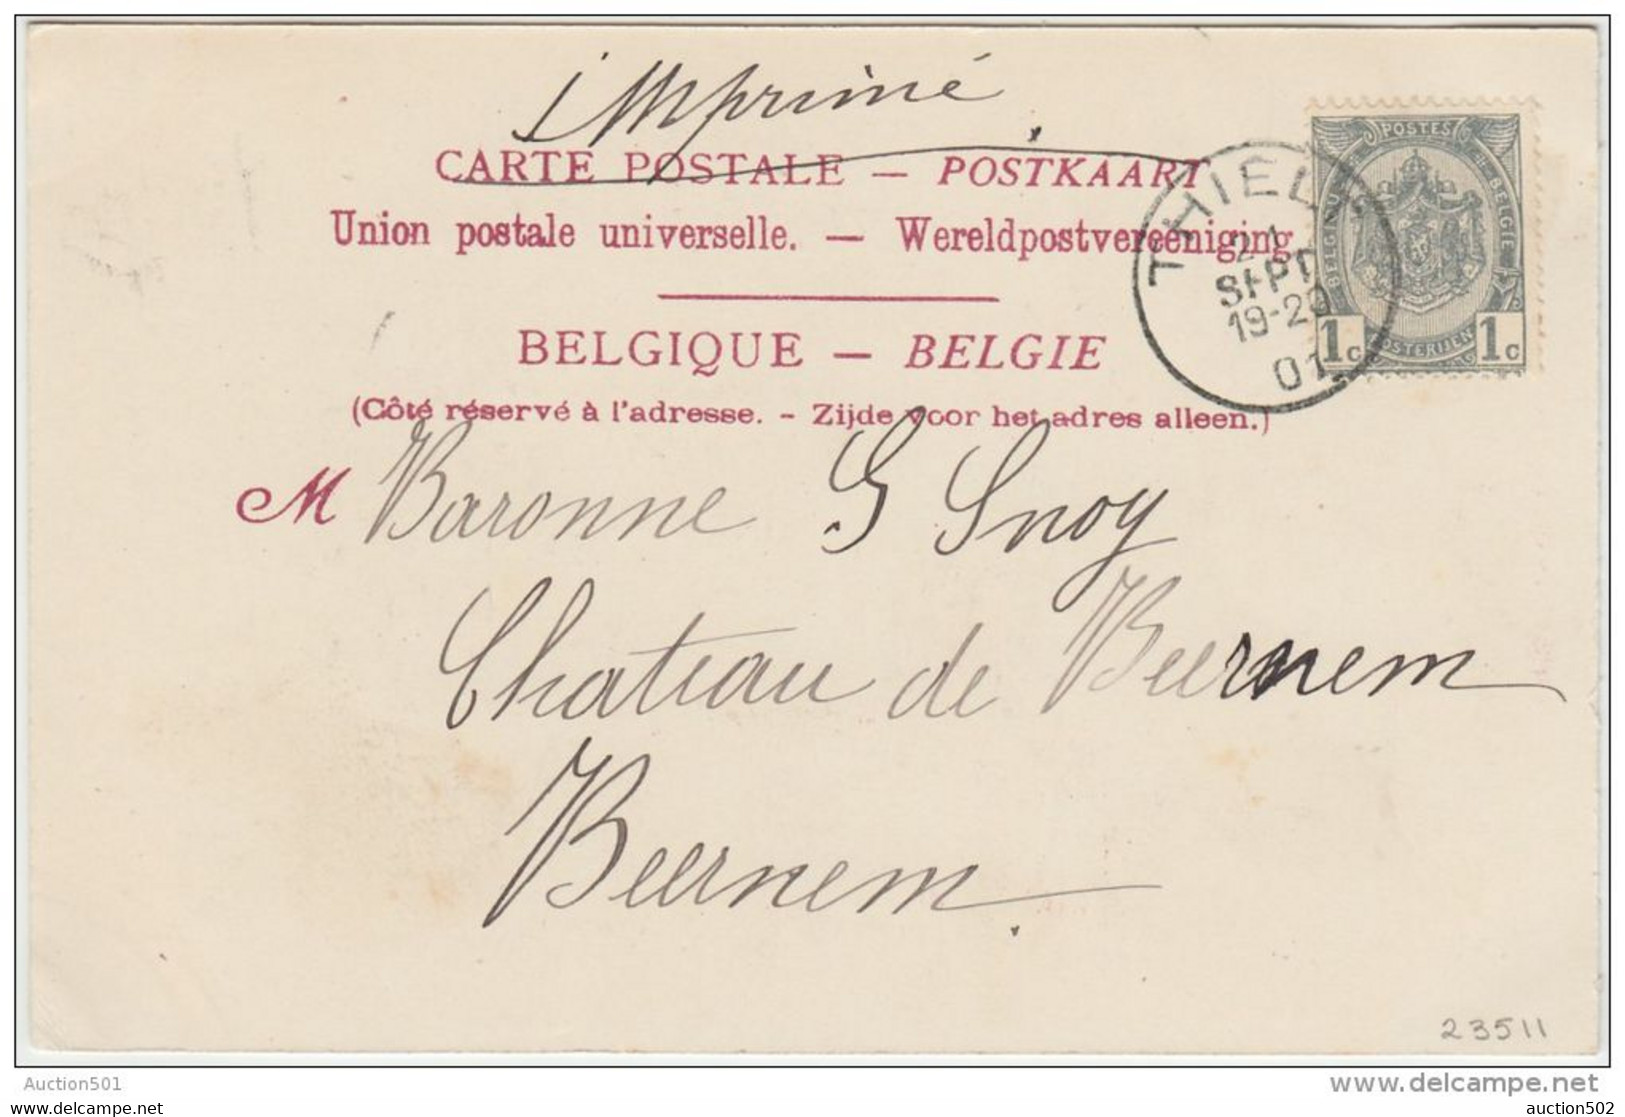 imprimé
CARTE POSTALE — POSTKAART
Union postale universelle. — Wereldpostvereeniging
BELGIQUE — BELGIE
(Côté réservé à l'adresse. - Zijde voor het adres alleen.)
M Baronne G Snoy
Chateau de Beernem
Beernem
THIELT
21
SEPT
19-20
01
POSTES
BELGIQUE
BELGIE
POSTERIJEN
1c 1c
23511
Auction501
www.delcampe.net
auction501
auction502